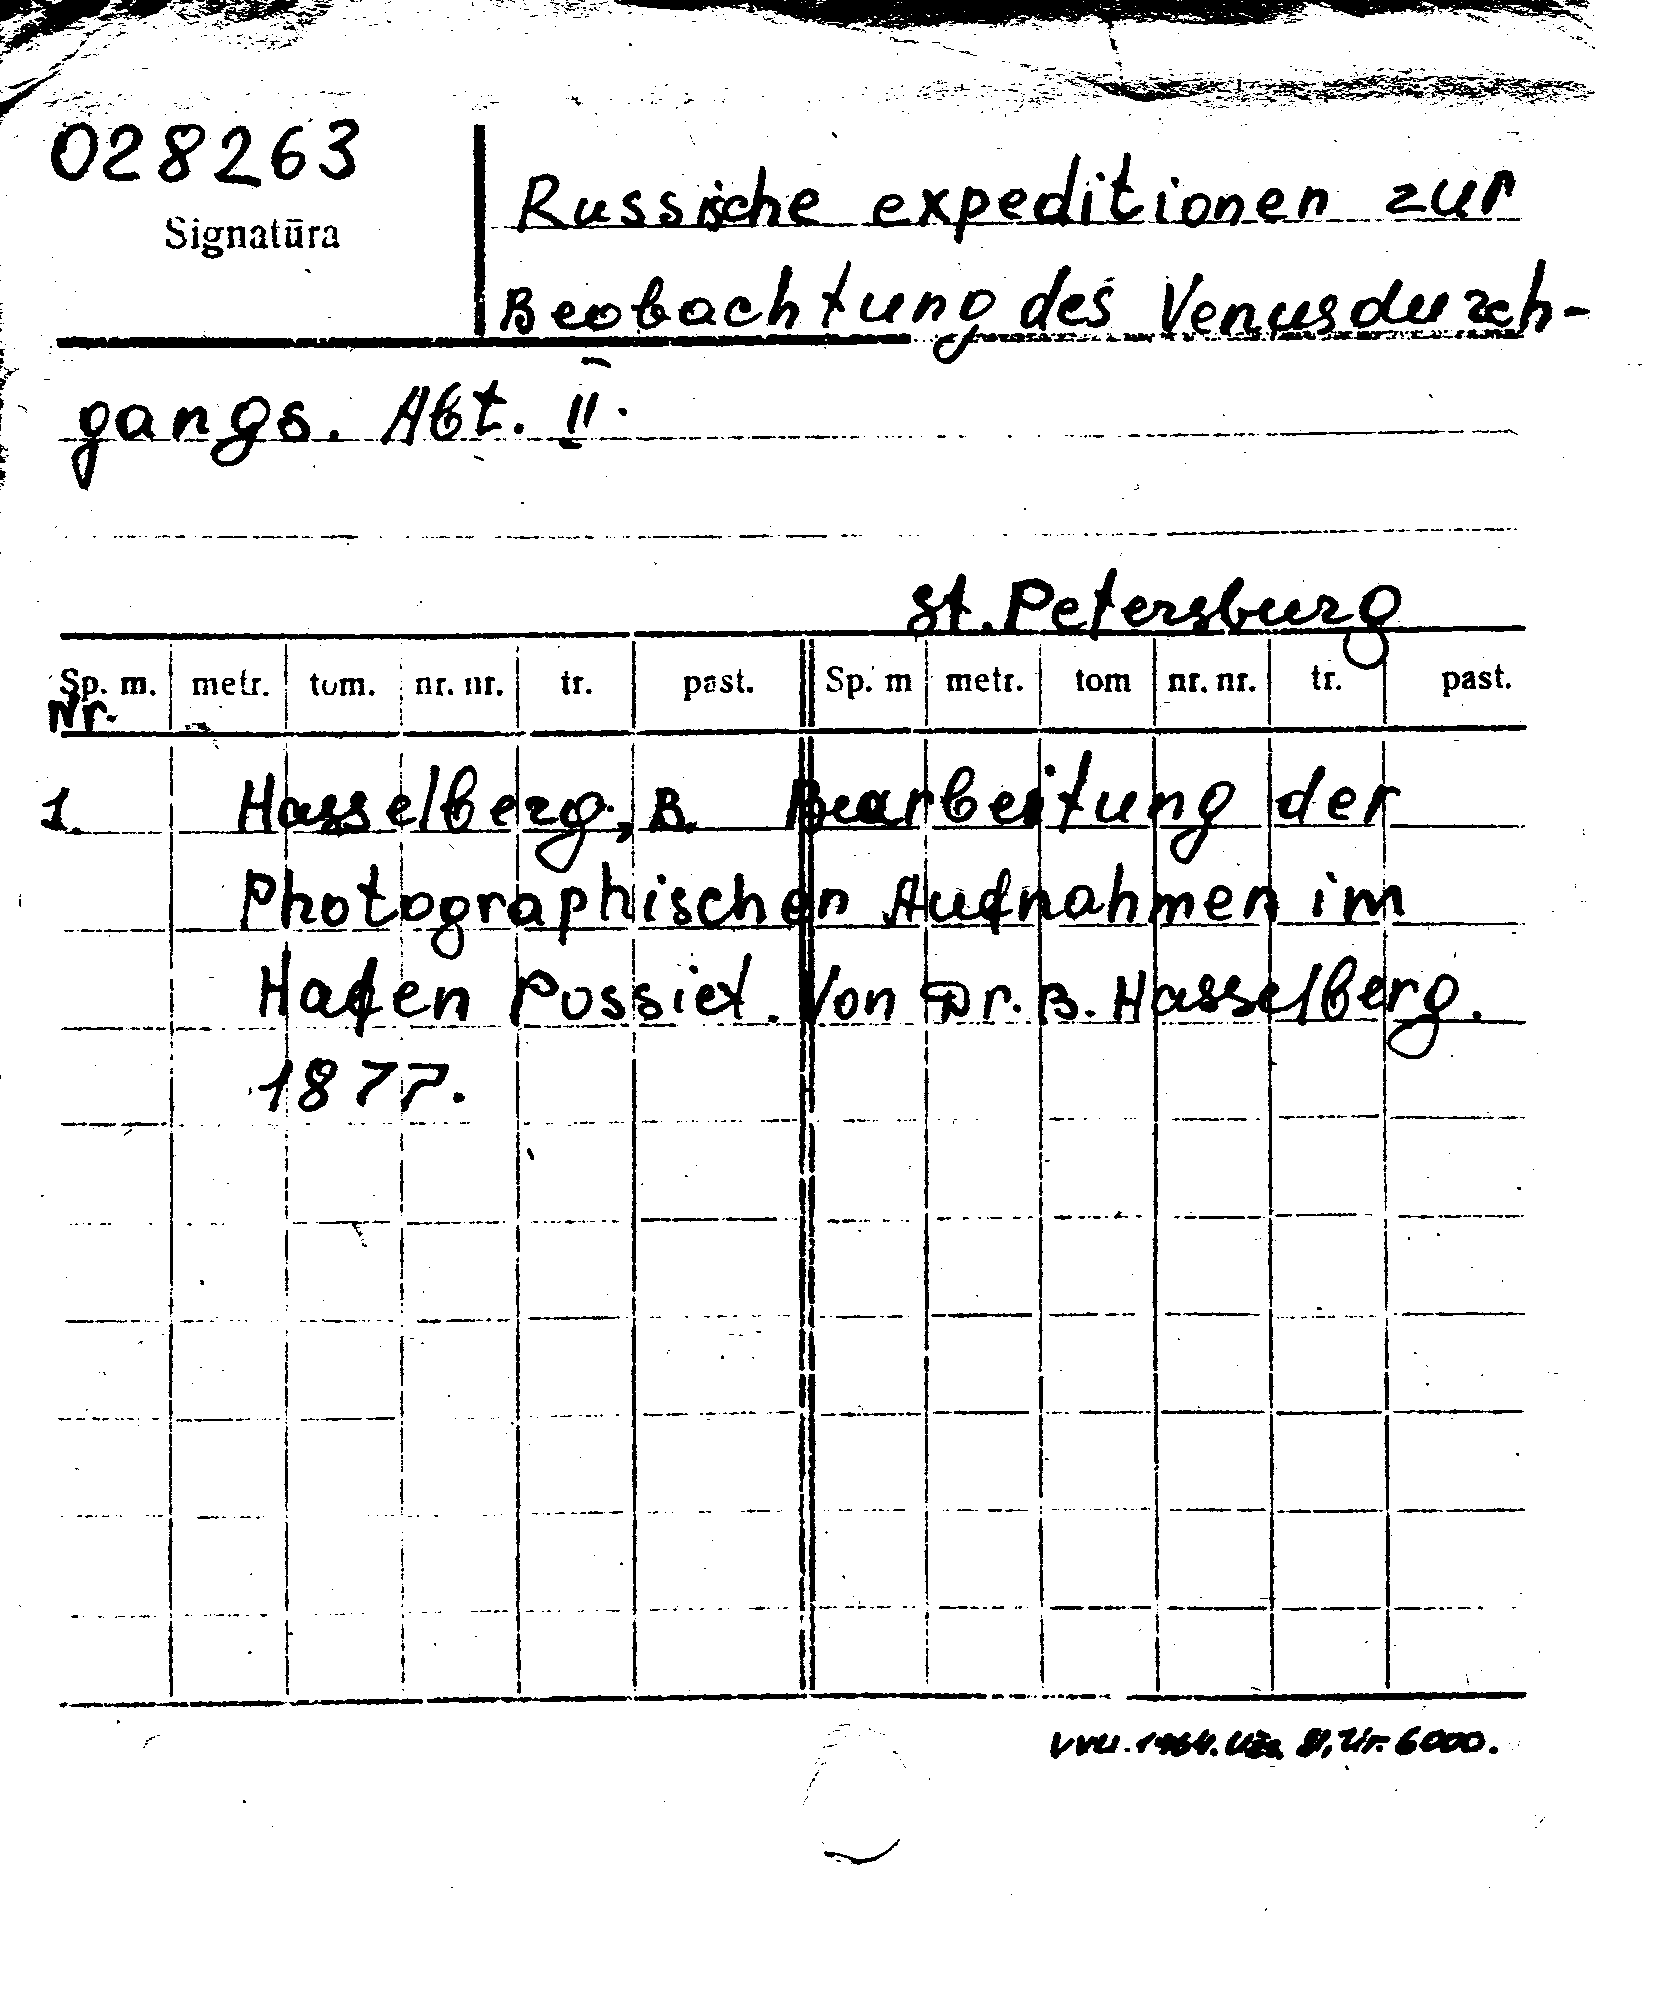 028263
Signatūra
Russische expeditionen zur
Beobachtung des Venusdurch-
gangs. Abt. II.
St. Petersburg
Sp. m. metr. tom. nr. nr. tr. past. Sp. m metr. tom nr. nr. tr. past.
Nr.
1. Hasselberg, B. Bearbeitung der
Photographischen Aufnahmen im
Hafen Possiet. Von Dr. B. Hasselberg.
1877.
VVU. 1964. Užs. 6000.